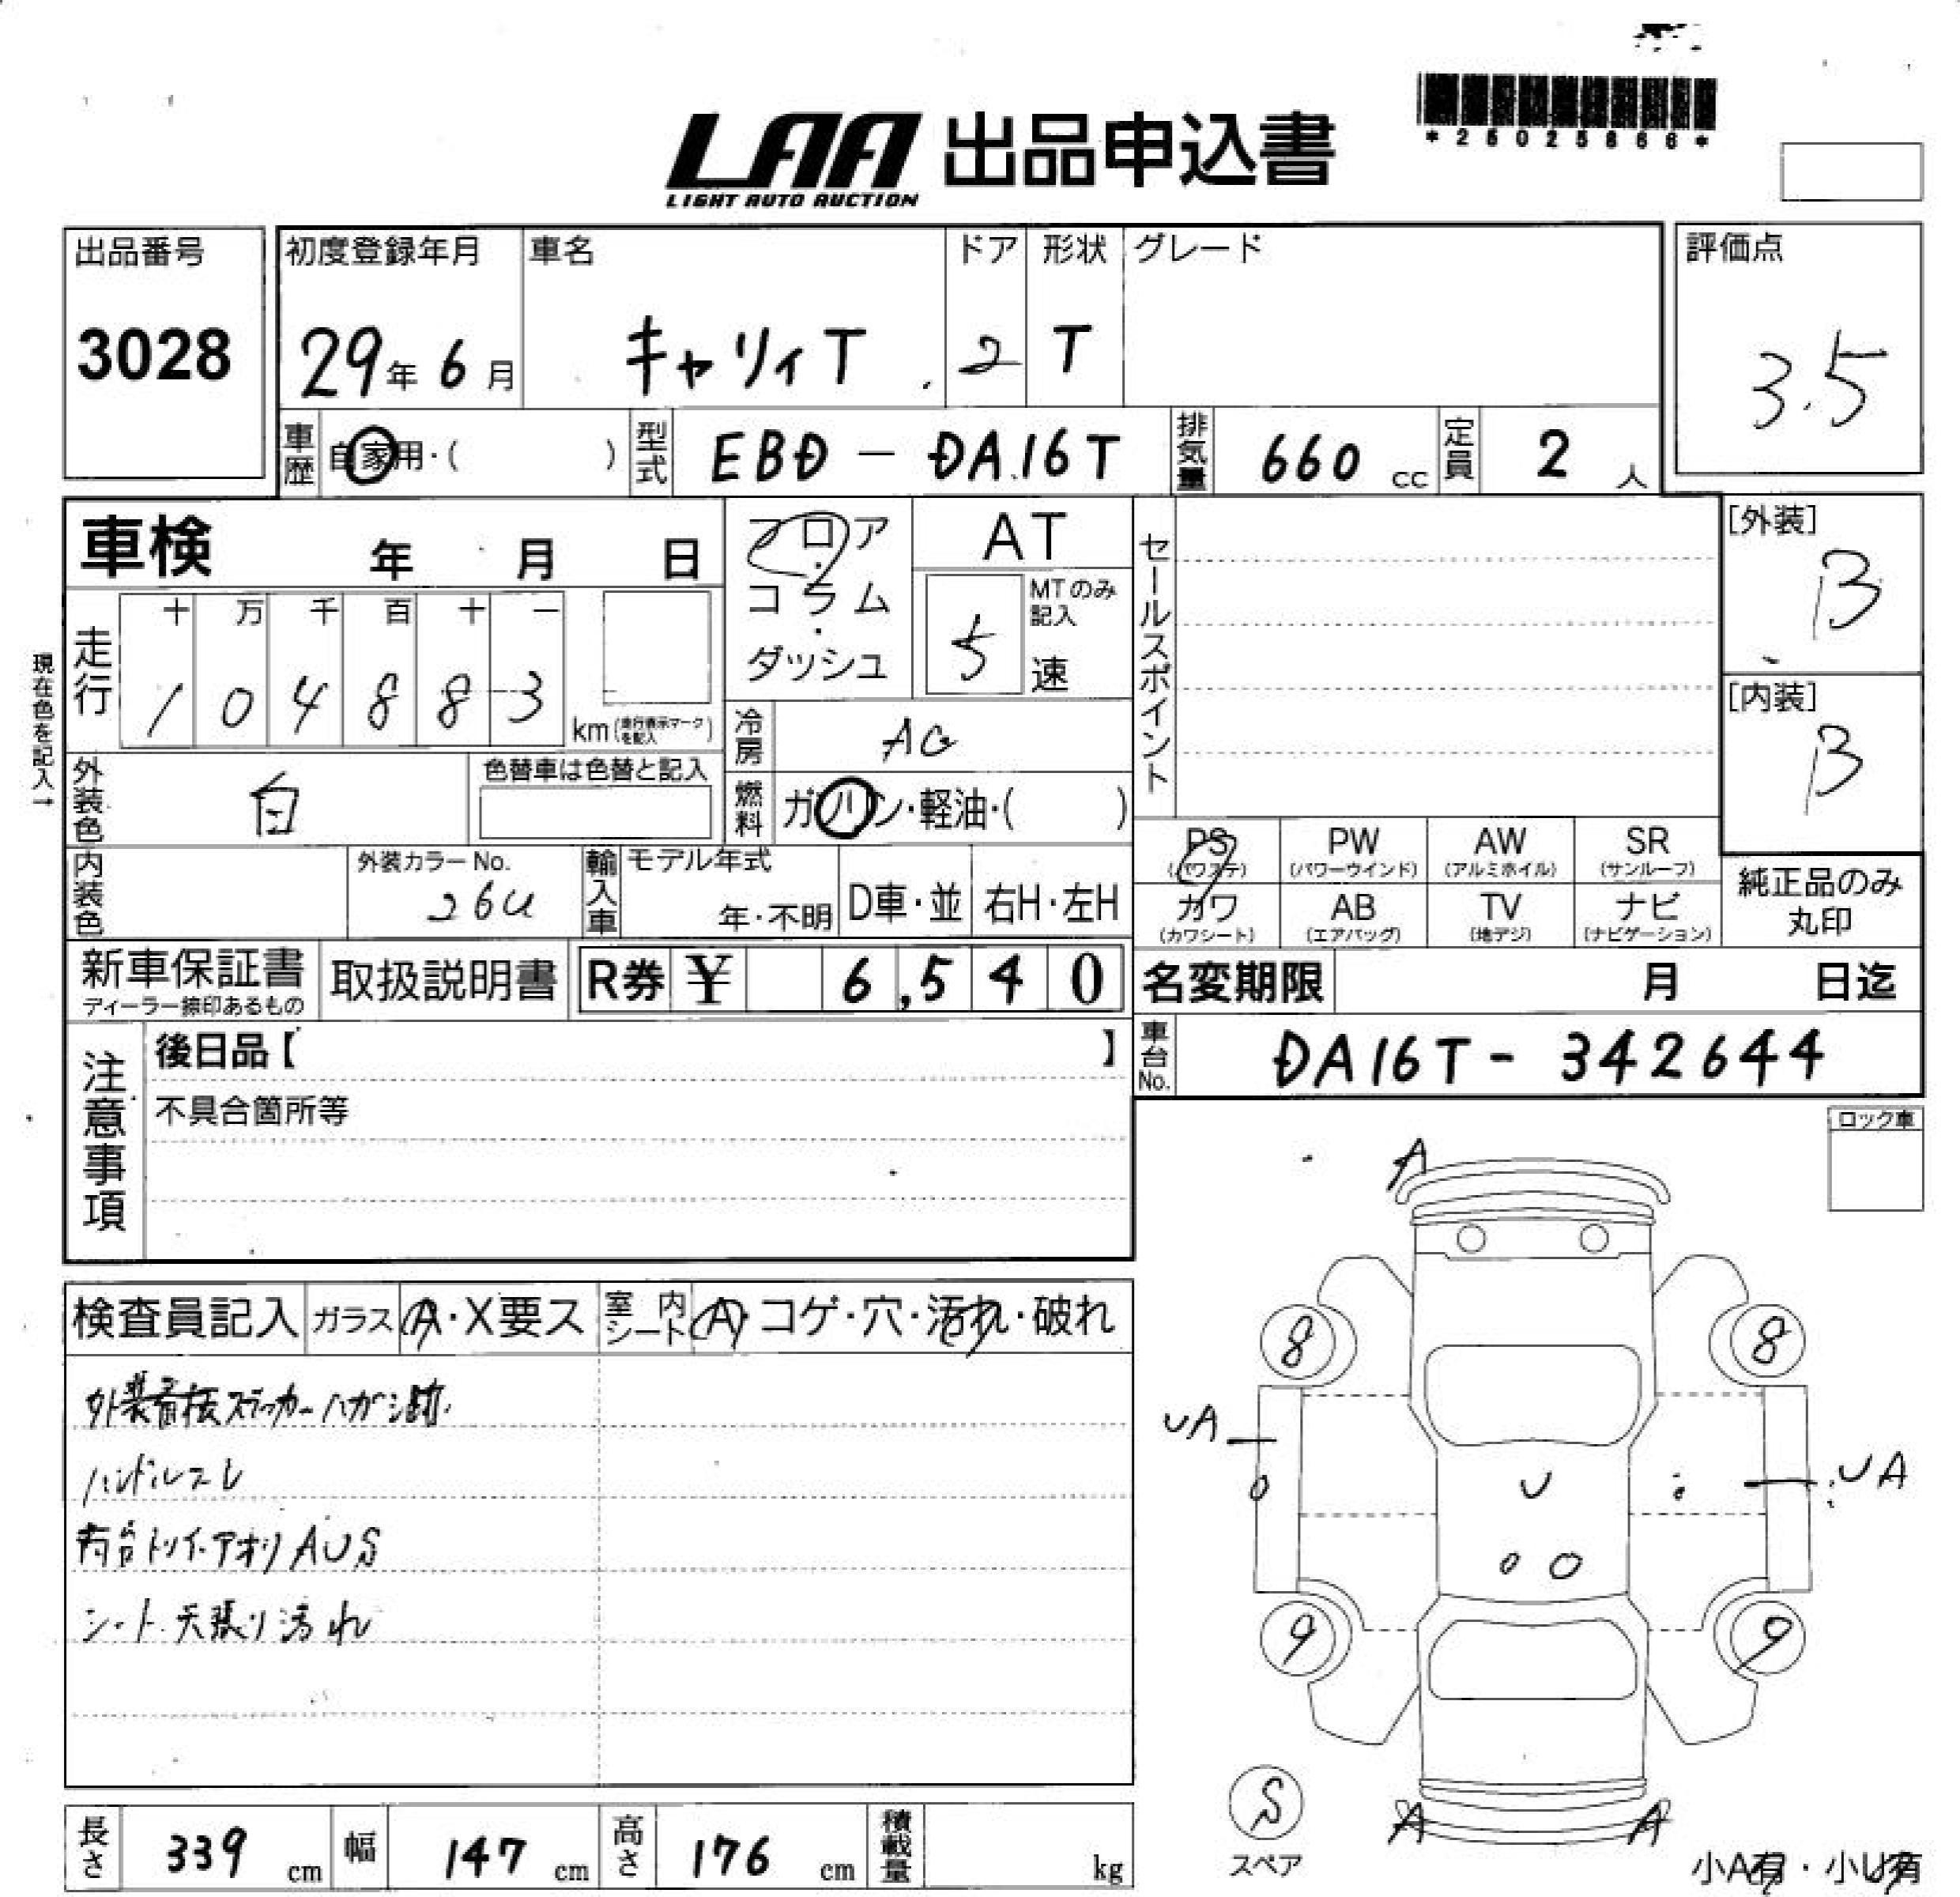 *26025866*
LAA 出品申込書
LIGHT AUTO AUCTION
出品番号
3028
初度登録年月
29年 6月
車名
キャリィT
ドア
2
形状
T
グレード
評価点
3.5
車歴
自家用・( )
型式
EBD-DA16T
排気量
660 cc
定員
2 人
車検 年 月 日
フロア・コラム・ダッシュ
AT
MTのみ記入
5 速
セールスポイント
[外装]
B
[内装]
B
現在色を記入→
走行
十 万 千 百 十 一
1 0 4 8 8 3
km (走行表示マークを記入)
冷房
AC
外装色
白
色替車は色替と記入
燃料
ガソリン・軽油・( )
PS (パワステ)
PW (パワーウインド)
AW (アルミホイル)
SR (サンルーフ)
カワ (カワシート)
AB (エアバッグ)
TV (地デジ)
ナビ (ナビゲーション)
純正品のみ丸印
内装色
外装カラーNo.
26U
輸入車
モデル年式
年・不明
D車・並
右H・左H
新車保証書
ディーラー捺印あるもの
取扱説明書
R券 ¥ 6,540
名変期限 月 日迄
車台No.
DA16T-342644
注意事項
後日品【 】
不具合箇所等
ロック車
検査員記入
ガラス
A・X要ス
室内シート
A・コゲ・穴・汚れ・破れ
ステッカーハガシ跡
ハンドルスレ
荷台トリイ・アオリAUS
シート・天張り汚れ
A
8
8
UA
UA
U
9
9
S
スペア
A
A
小A有・小U有
長さ
339 cm
幅
147 cm
高さ
176 cm
積載量
kg